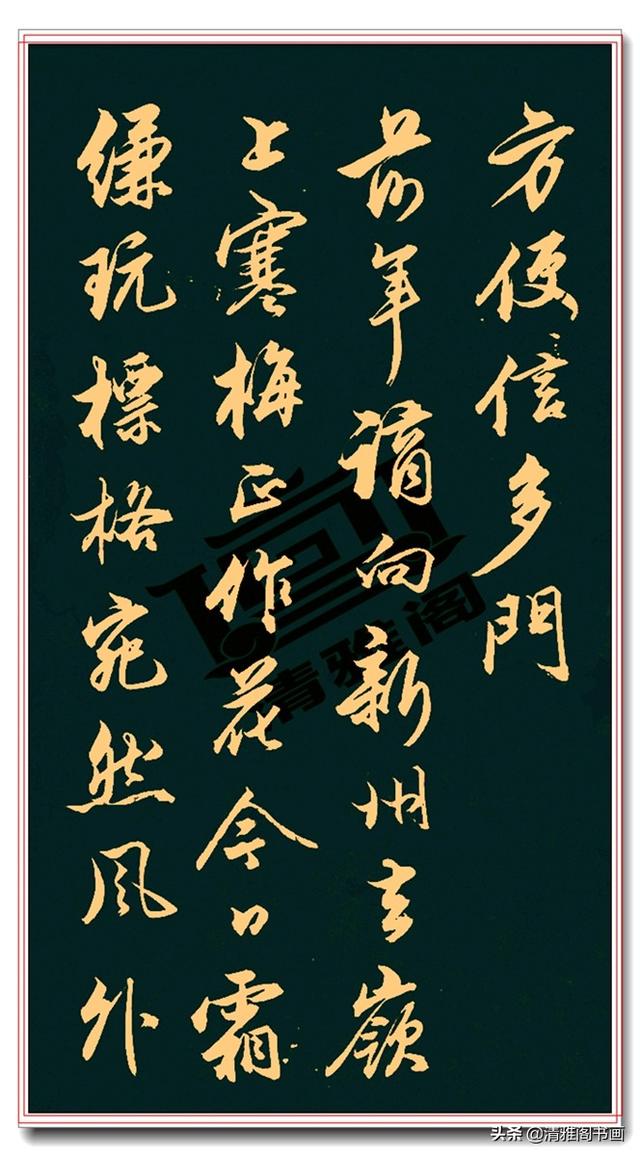 方便信多門
前年謫向新州去嶺
上寒梅正作花今日霜
縑玩標格宛然風外
清雅阁
头条 @清雅阁书画